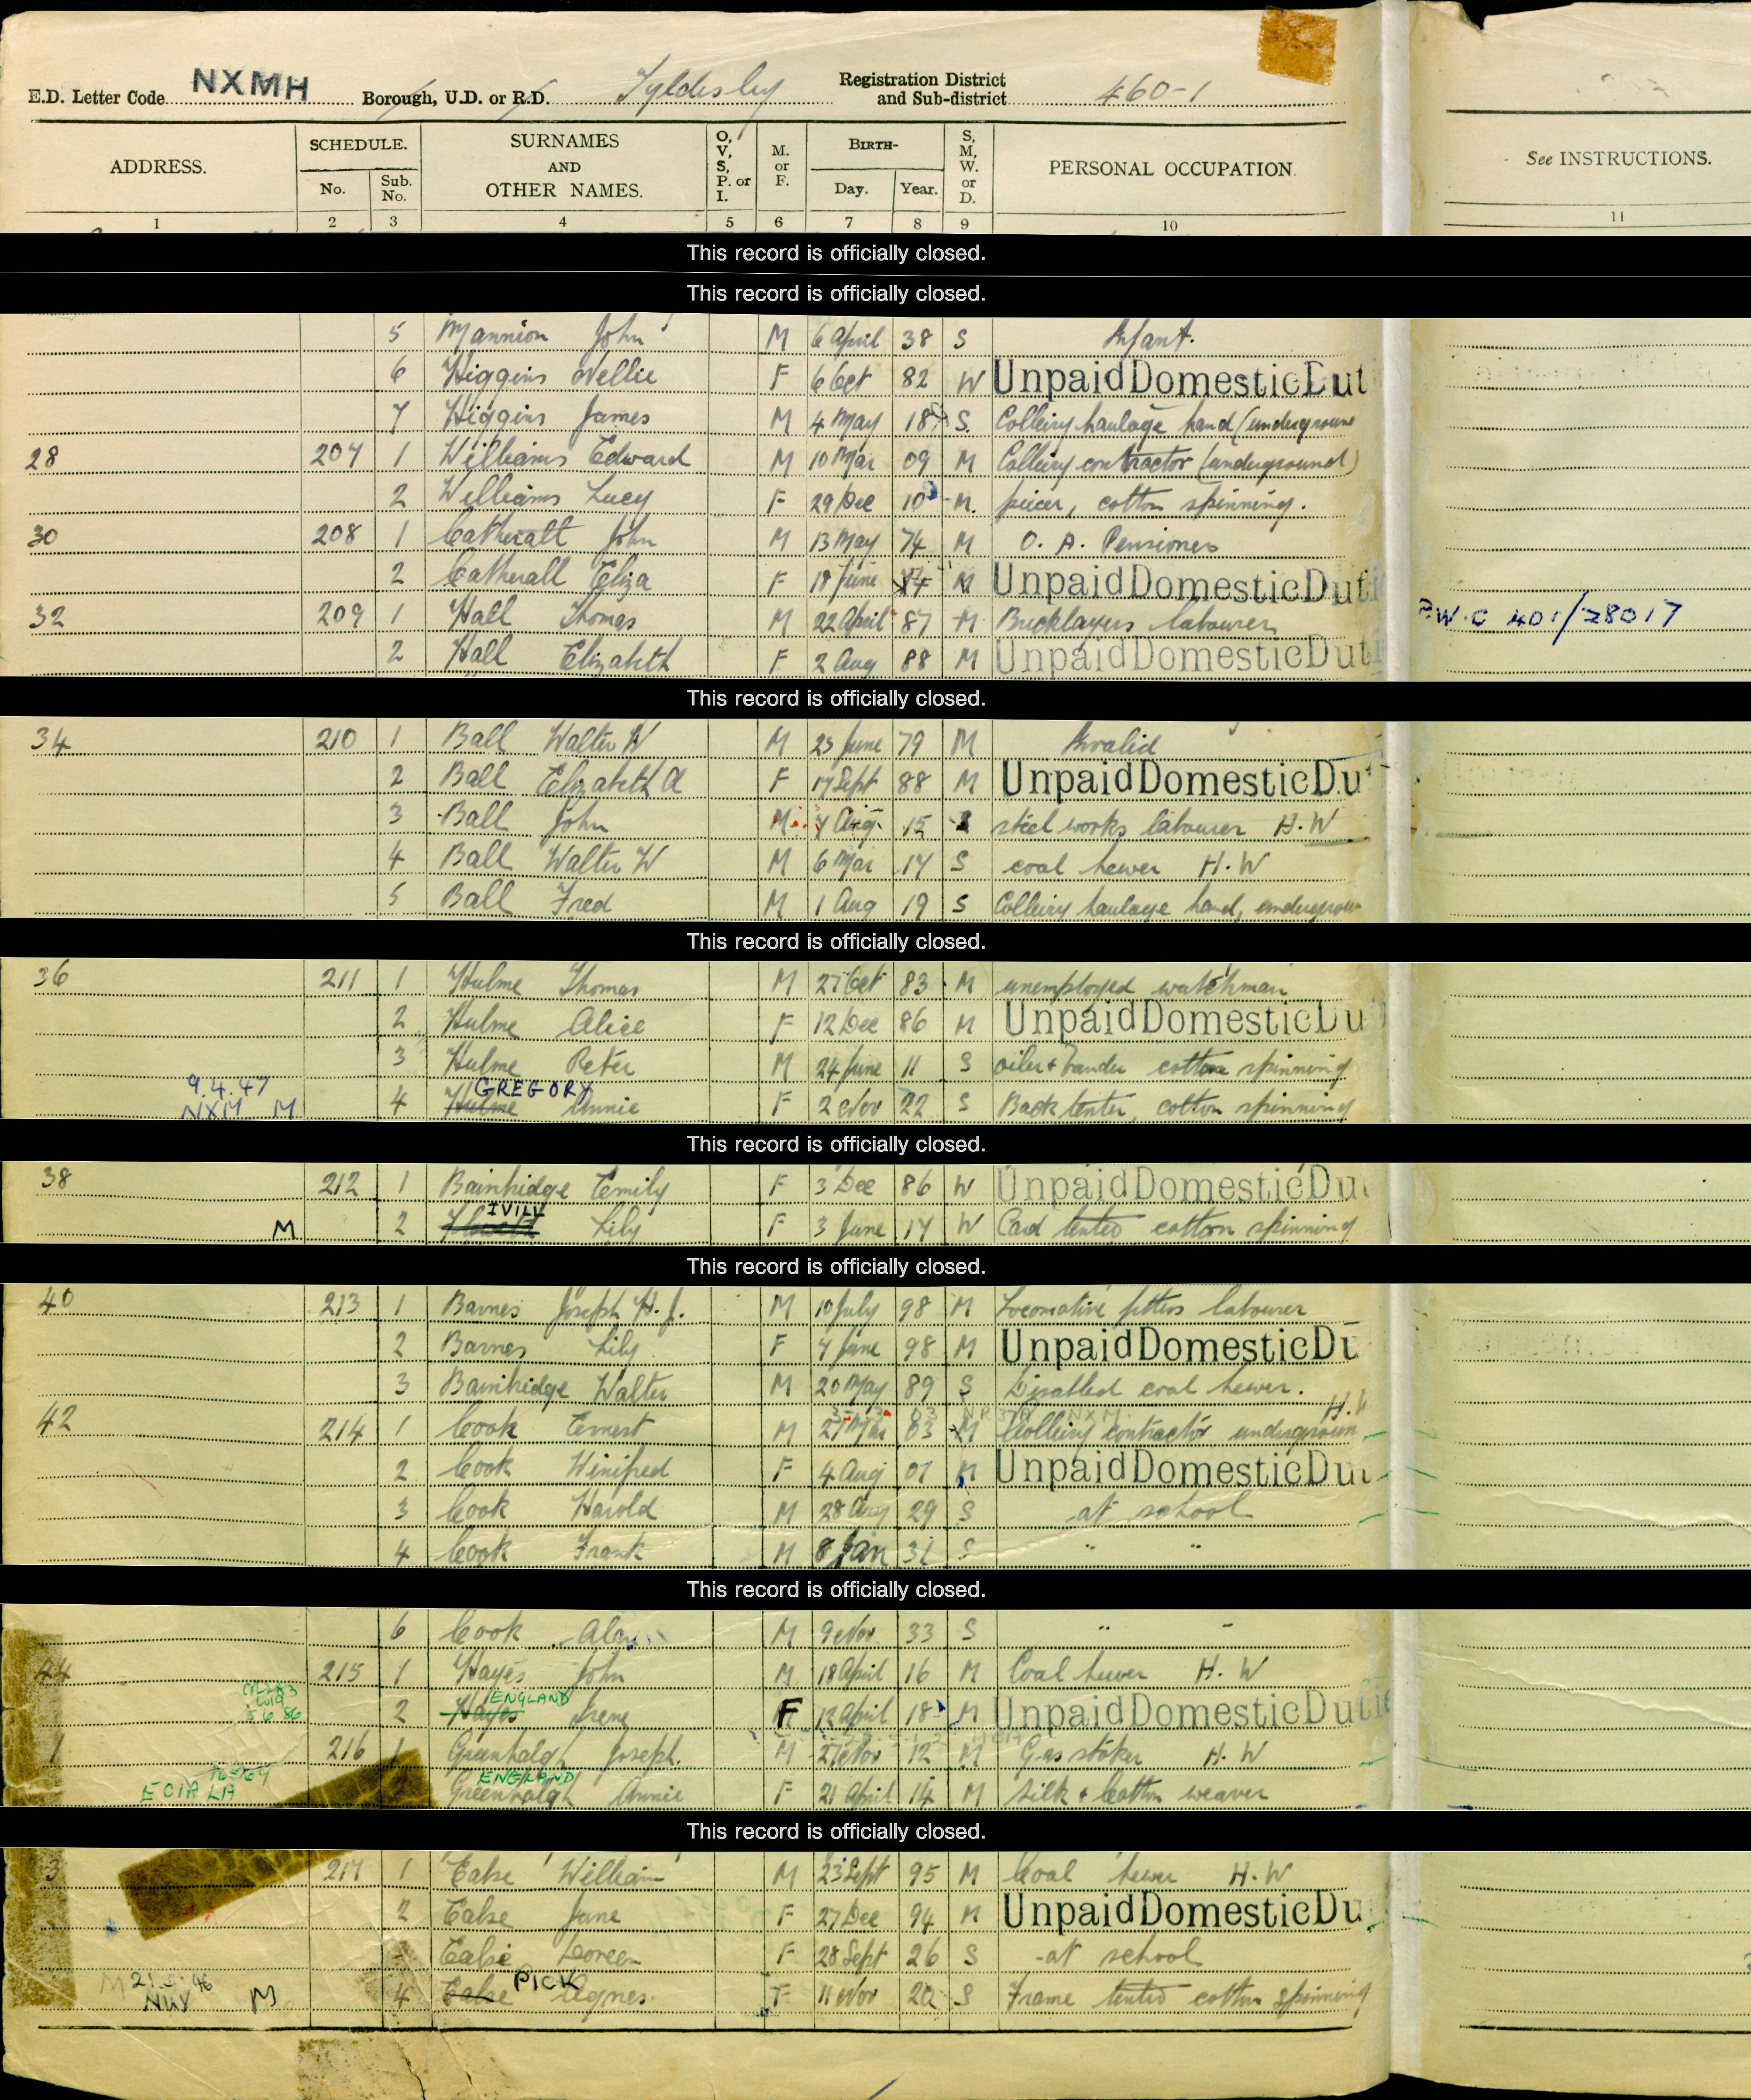 E.D. Letter Code NXMH Borough, U.D. or R.D. Tyldesley Registration District and Sub-district 460-1
ADDRESS. SCHEDULE. No. Sub. No. SURNAMES AND OTHER NAMES. O, V, S, P. or I. M. or F. BIRTH- Day. Year. S, M, W. or D. PERSONAL OCCUPATION. See INSTRUCTIONS.
1 2 3 4 5 6 7 8 9 10 11
This record is officially closed.
This record is officially closed.
5 Mannion John M 6 April 38 S Infant.
6 Higgins Nellie F 6 Oct 82 W UnpaidDomesticDut
7 Higgins James M 4 May 18 S. Colleiry haulage hand (underground
28 207 1 Williams Edward M 10 Mar 09 M Colleiry contractor (underground)
2 Williams Lucy F 29 Dec 10 M. piecer, cotton spinning.
30 208 1 Catherall John M 13 May 74 M O. A. Pensioner
2 Catherall Eliza F 18 June 84 M UnpaidDomesticDuti
32 209 1 Hall Thomas M 22 April 87 M Bricklayers labourer W.C 401/28017
2 Hall Elizabeth F 2 Aug 88 M UnpaidDomesticDuti
This record is officially closed.
34 210 1 Ball Walter W M 23 June 79 M Invalid
2 Ball Elizabeth A F 17 Sept 88 M UnpaidDomesticDu
3 Ball John M 7 Aug 15 S steel works labourer H.W
4 Ball Walter W M 6 Mar 17 S coal hewer H.W
5 Ball Fred M 1 Aug 19 S Colleiry haulage hand, undergrou
This record is officially closed.
36 211 1 Hulme Thomas M 27 Oct 83 M unemployed watchman
2 Hulme Alice F 12 Dec 86 M UnpaidDomesticDu
3 Hulme Peter M 24 June 11 S oiler & bander cotton spinning
9.4.47 GREGORY
NXM M 4 Hulme Annie F 2 Nov 22 S Back tenter, cotton spinning
This record is officially closed.
38 212 1 Bainbridge Emily F 3 Dec 86 W UnpaidDomesticDu
M 2 Lily F 3 June 17 W Card tenter cotton spinning
This record is officially closed.
40 213 1 Barnes Joseph H. J. M 10 July 98 M Locomotive fitters labourer
2 Barnes Lily F 7 June 98 M UnpaidDomesticDu
3 Bainbridge Walter M 20 May 89 S Disabled coal hewer.
42 214 1 Cook Ernest M 27 Mar 03 M Colleiry contractor undergroun H.W
2 Cook Winifred F 4 Aug 07 M UnpaidDomesticDut
3 Cook Harold M 28 Aug 29 S at school
4 Cook Frank M 8 Jan 31 S " "
This record is officially closed.
6 Cook Alan M 9 Nov 33 S " "
44 215 1 Hayes John M 18 April 16 M Coal hewer H. W
ENGLAND
2 Hayes Irene F 12 April 18 M UnpaidDomesticDutie
1 216 1 Greenhalgh Joseph. M 27 Nov 12 M Gas stoker H. W
ENGLAND
Greenhalgh Annie F 21 April 14 M Silk & Cotton weaver
This record is officially closed.
3 217 1 Ealse William M 23 Sept 95 M Coal hewer H.W
2 Ealse Jane F 27 Dec 94 M UnpaidDomesticDu
Ealse Doreen F 28 Sept 26 S at school
PICK
M 4 Ealse Agnes F 11 Nov 20 S Frame tenter cotton spinning